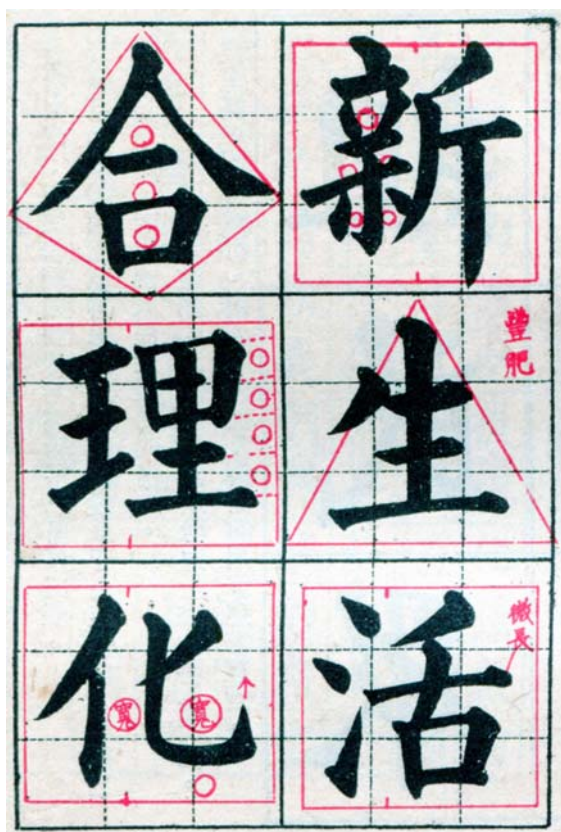 新生活
豐肥
微長
合理化
寬 寬